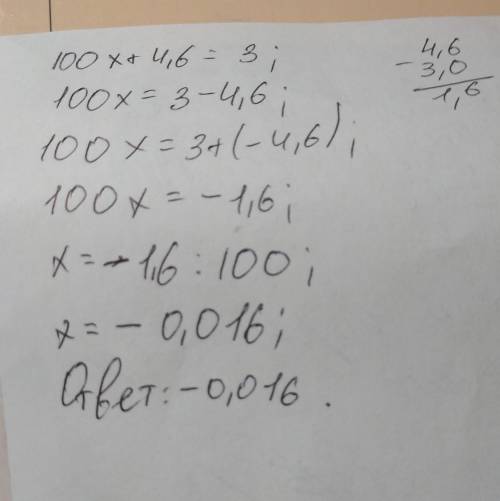 100x + 4,6 = 3;
100x = 3 - 4,6;
100x = 3 + (-4,6);
100x = -1,6;
x = -1,6 : 100;
x = - 0,016;
Ответ: -0,016.
4,6
- 3,0
1,6